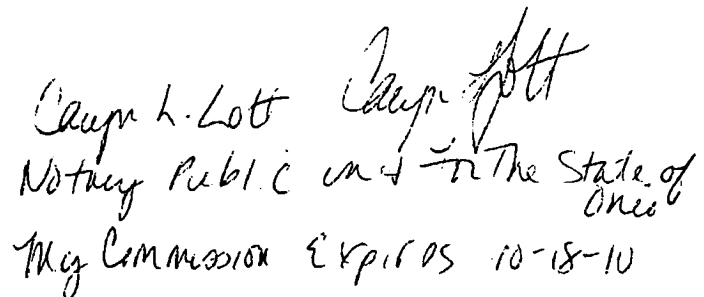 Caryn L. Lott Caryn Lott
Notary Public in & for The State of
Ohio
My Commission Expires 10-18-10